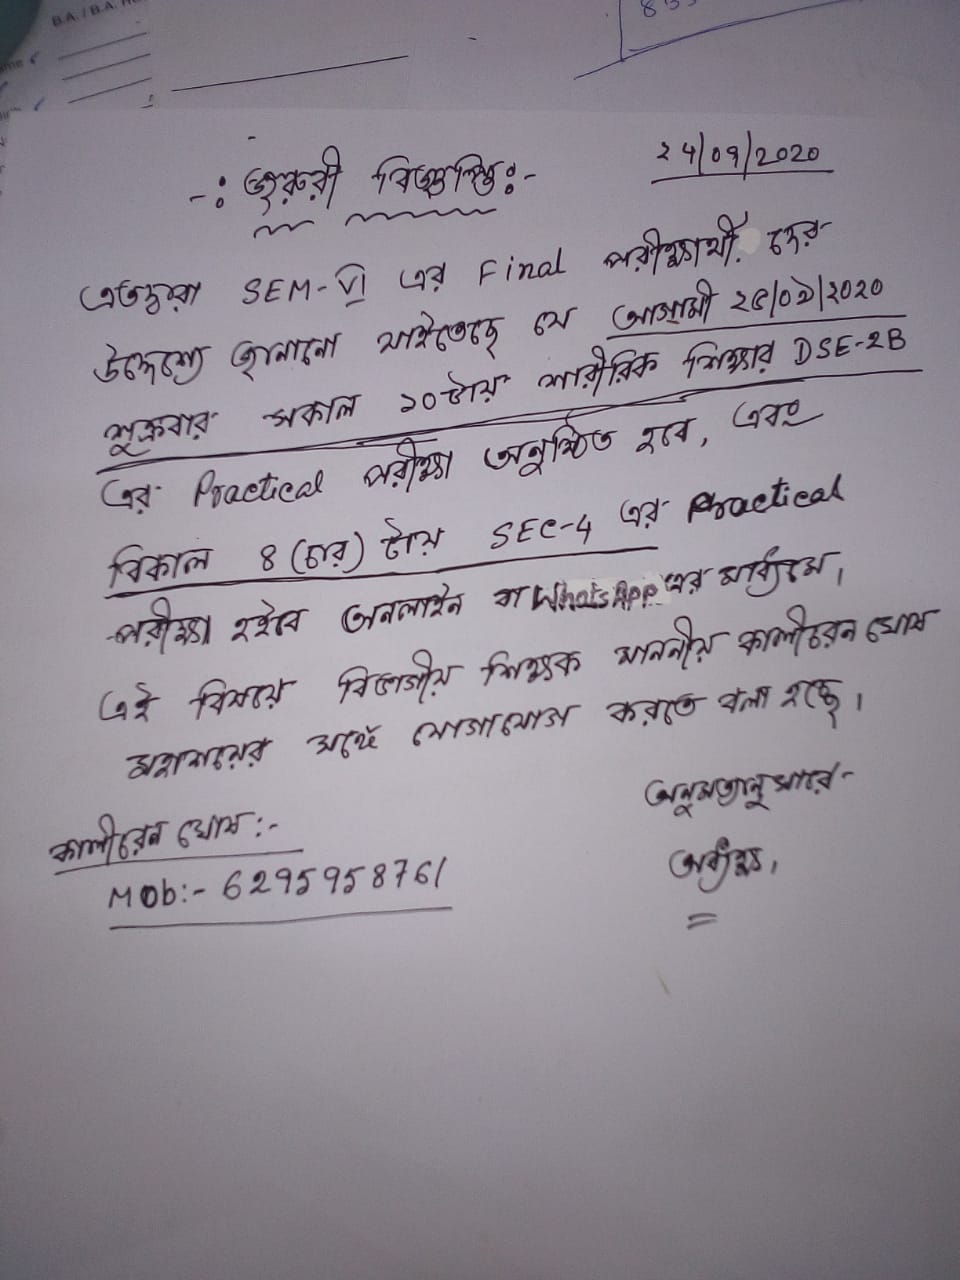 B.A. / B.A.
-: জরুরী বিজ্ঞপ্তি:-
২4/09/2020
এতদ্বারা SEM-VI এর Final পরীক্ষার্থী দের
উদ্দেশ্যে জানানো যাইতেছে যে আগামী ২৫/০৯/2020
শুক্রবার সকাল ১০টায় শারীরিক শিক্ষার DSE-2B
এর Practical পরীক্ষা অনুষ্ঠিত হবে, এবং
বিকাল ৪ (চার) টায় SEC-4 এর Practical
পরীক্ষা হইবে অনলাইন বা WhatsApp এর মাধ্যমে,
এই বিষয়ে বিভাগীয় শিক্ষক মাননীয় কালীরেন ঘোষ
মহাশয়ের সঙ্গে যোগাযোগ করতে বলা হচ্ছে।
অনুমত্যানুসারে-
অধ্যক্ষ,
কালীরেন ঘোষ:-
Mob:- 6295958761